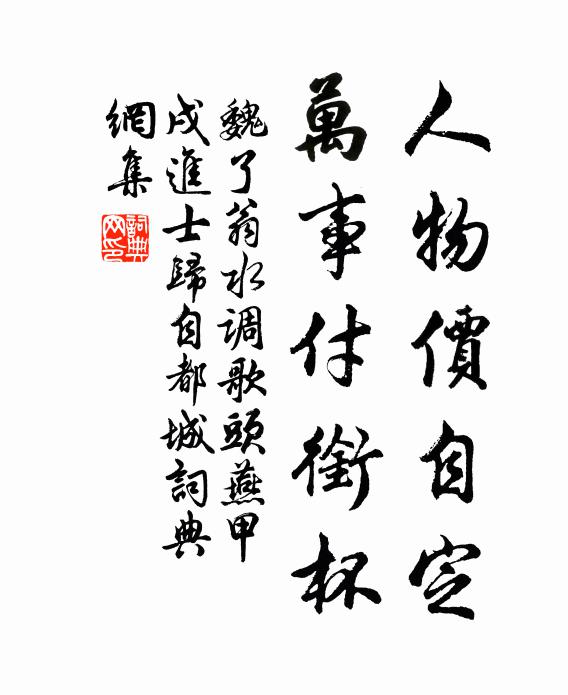 人物價自定
萬事付銜杯
魏了翁水调歌頭燕甲
戌進士歸自都城詞典
網集
詞典
网印